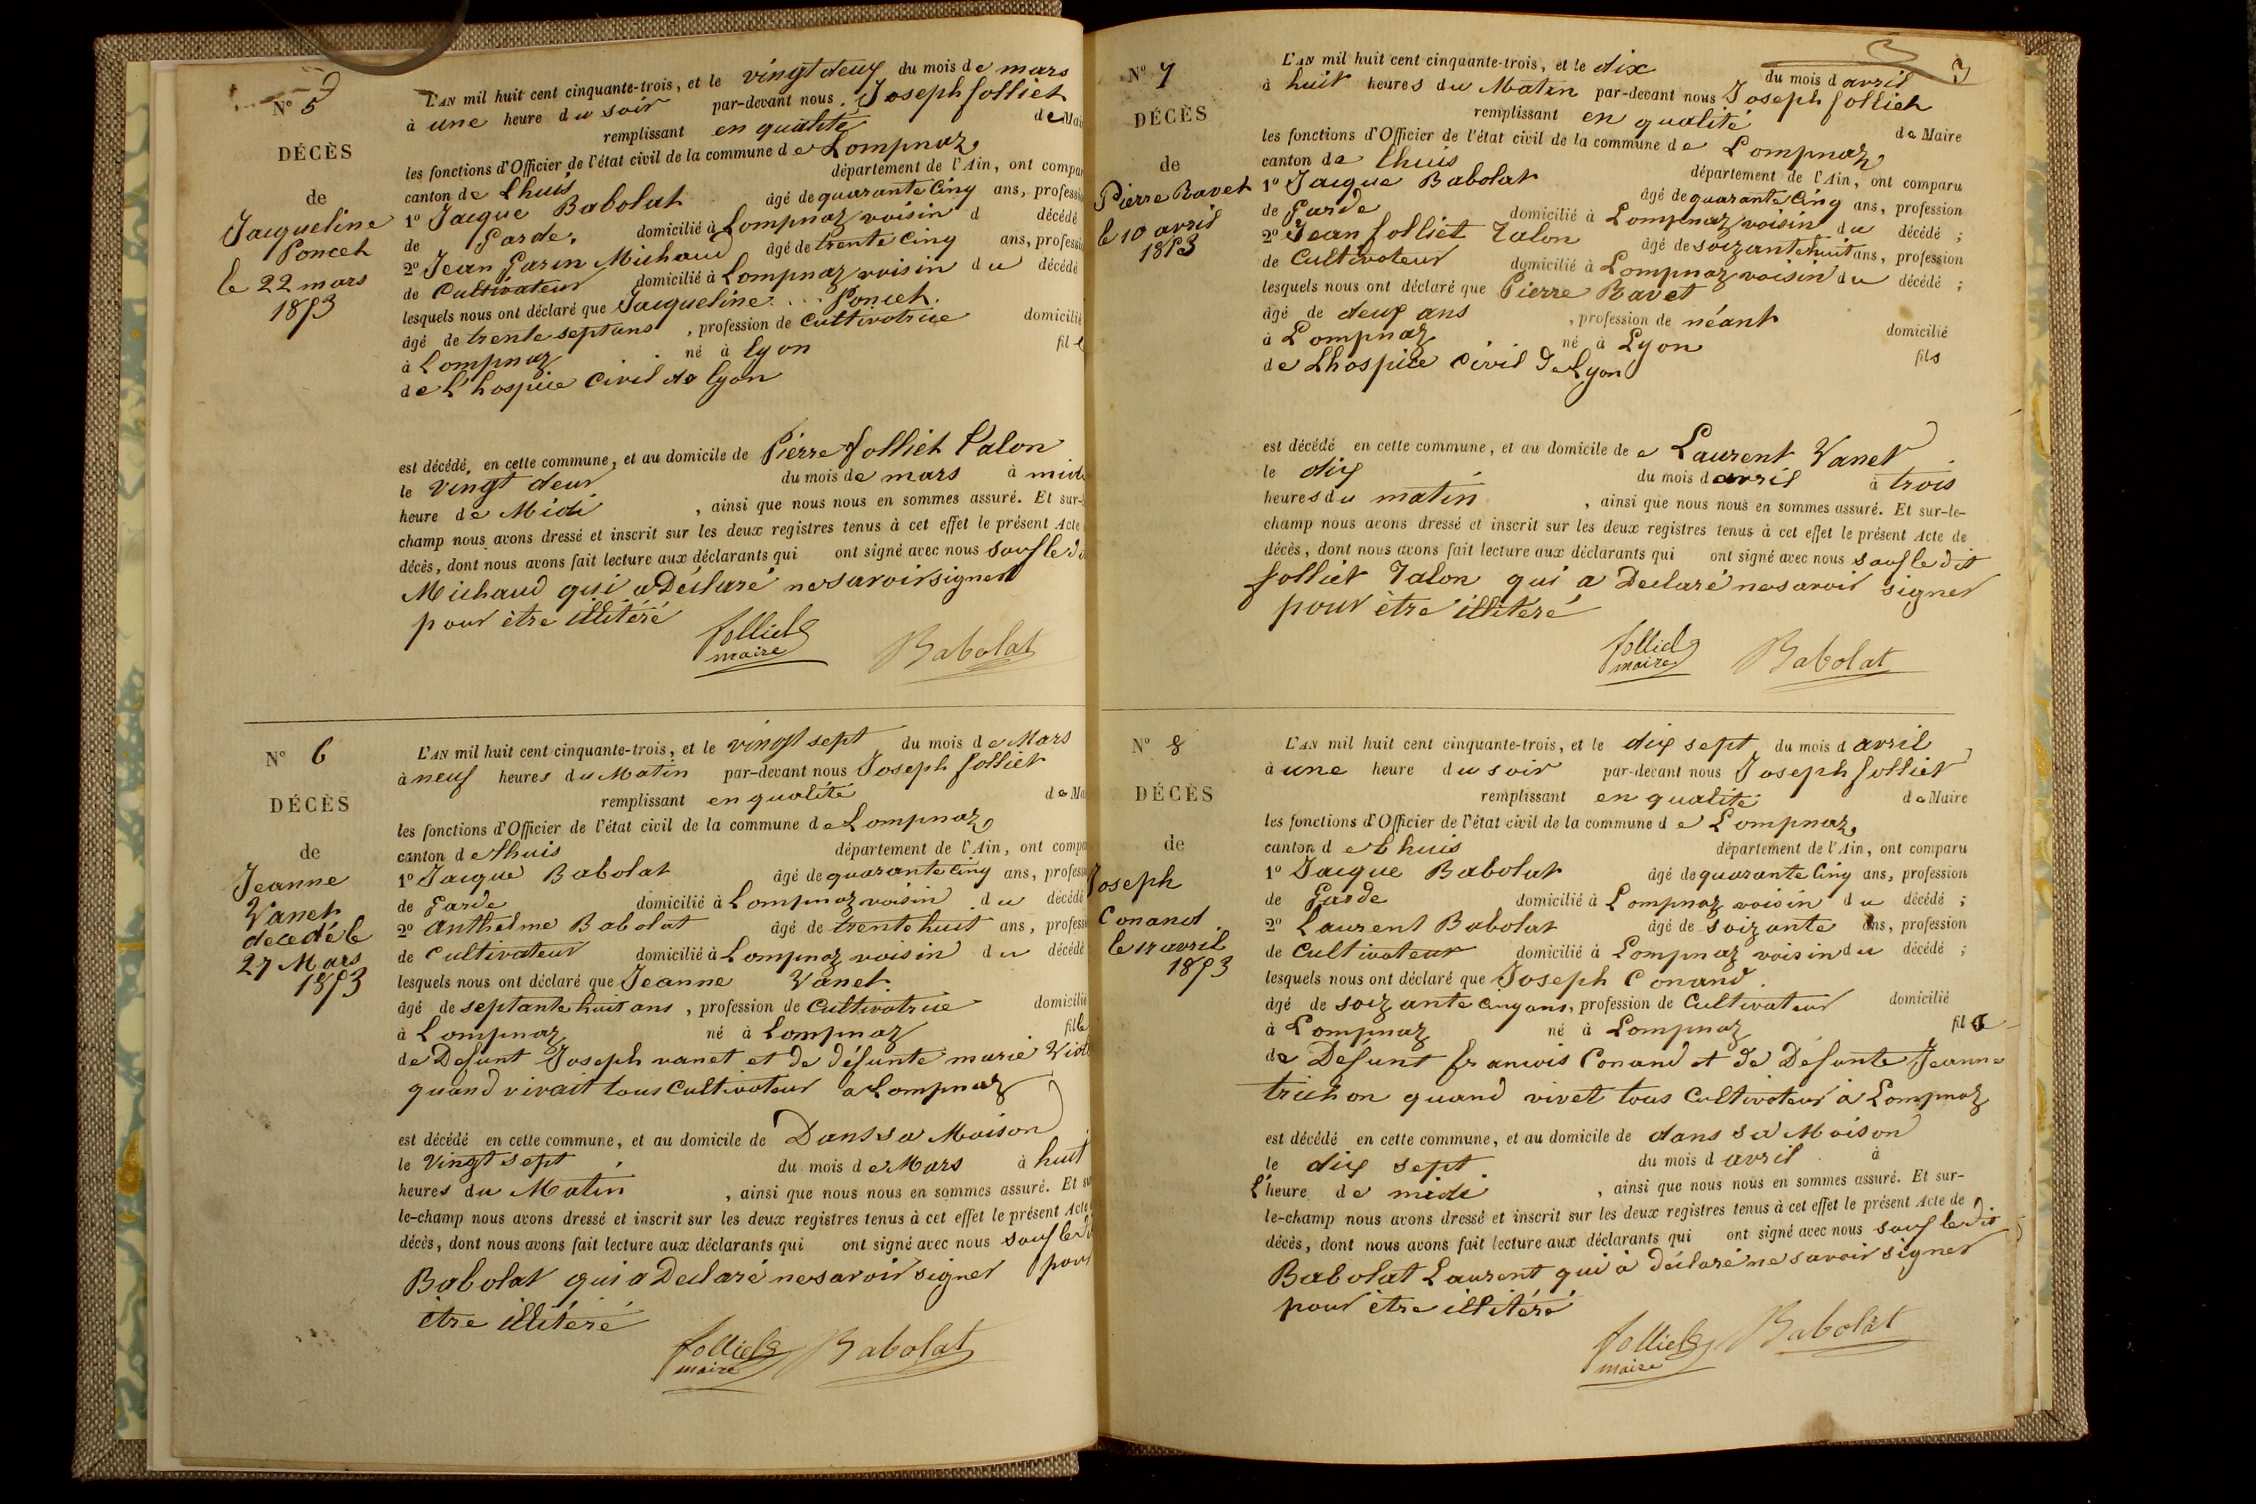 N° 5
DÉCÈS
de
Jacqueline
Poncet
le 22 mars
1853
L'AN mil huit cent cinquante-trois, et le vingt deux du mois de mars
à une heure du soir par-devant nous Joseph folliet
remplissant en qualité de Mai
les fonctions d'Officier de l'état civil de la commune de Lompnaz,
canton de Lhuis département de l'Ain, ont compar
1° Jacque Babolat âgé de quarante Cinq ans, professi
de Garde, domicilié à Lompnaz voisin d décédé
2° Jean Garin Michaud âgé de trente Cinq ans, professi
de Cultivateur domicilié à Lompnaz voisin du décédé
lesquels nous ont déclaré que Jacqueline Poncet.
âgé de trente sept ans, profession de Cultivatrice domicilié
à Lompnaz né à lyon fil e
de L'hospice Civil de lyon
est décédé, en cette commune, et au domicile de Pierre folliet Talon
le vingt deux du mois de mars à midi
heure de Midi, ainsi que nous nous en sommes assuré. Et sur-l
champ nous avons dressé et inscrit sur les deux registres tenus à cet effet le présent Acte
décès, dont nous avons fait lecture aux déclarants qui ont signé avec nous sauf le di
Michaud qui a Déclaré ne savoir signer
pour être illitéré
folliet
maire
Babolat
N° 6
DÉCÈS
de
Jeanne
Vanet
decedé le
27 Mars
1853
L'AN mil huit cent cinquante-trois, et le vingt sept du mois de Mars
à neuf heures du Matin par-devant nous Joseph folliet
remplissant en qualité de Ma
les fonctions d'Officier de l'état civil de la commune de Lompnaz,
canton de lhuis département de l'Ain, ont compa
1° Jacque Babolat âgé de quarante Cinq ans, profess
de Garde domicilié à Lompnaz voisin du décédé
2° Anthelme Babolat âgé de trente huit ans, profess
de Cultivateur domicilié à Lompnaz voisin du décédé
lesquels nous ont déclaré que Jeanne Vanet.
âgé de septante huit ans, profession de Cultivatrice domicilié
à Lompnaz né à Lompnaz fille
de Defunt Joseph vanet et de défunte marie
quand vivait tous Cultivateur a Lompnaz
est décédé en cette commune, et au domicile de Dans sa Maison
le Vingt sept du mois de Mars à huit
heures du Matin, ainsi que nous nous en sommes assuré. Et su
le-champ nous avons dressé et inscrit sur les deux registres tenus à cet effet le présent Acte
décès, dont nous avons fait lecture aux déclarants qui ont signé avec nous sauf le di
Babolat qui a Declaré ne savoir signer pour
être illitéré
folliet
maire
Babolat
3
N° 7
DÉCÈS
de
Pierre Ravet
le 10 avril
1853
L'AN mil huit cent cinquante-trois, et le dix du mois d avril
à huit heures du Matin par-devant nous Joseph folliet
remplissant en qualité de Maire
les fonctions d'Officier de l'état civil de la commune de Lompnaz,
canton de lhuis département de l'Ain, ont comparu
1° Jacque Babolat âgé de quarante Cinq ans, profession
de Garde domicilié à Lompnaz voisin du décédé ;
2° Jean folliet Talon âgé de soizante huit ans, profession
de Cultivateur domicilié à Lompnaz voisin du décédé ;
lesquels nous ont déclaré que Pierre Ravet
âgé de deux ans, profession de néant domicilié
à Lompnaz né à Lyon fils
de Lhospice Civil de Lyon
est décédé en cette commune, et au domicile de e Laurent Vanet
le dix du mois d avril à trois
heures du matin, ainsi que nous nous en sommes assuré. Et sur-le-
champ nous avons dressé et inscrit sur les deux registres tenus à cet effet le présent Acte de
décès, dont nous avons fait lecture aux déclarants qui ont signé avec nous sauf le dit
folliet Talon qui a Declaré ne savoir signer
pour être illitéré
folliet
maire
Babolat
N° 8
DÉCÈS
de
Joseph
Conand
le 17 avril
1853
L'AN mil huit cent cinquante-trois, et le dix sept du mois d avril
à une heure du soir par-devant nous Joseph folliet
remplissant en qualité de Maire
les fonctions d'Officier de l'état civil de la commune de Lompnaz,
canton de Lhuis département de l'Ain, ont comparu
1° Jacque Babolat âgé de quarante Cinq ans, profession
de Garde domicilié à Lompnaz voisin du décédé ;
2° Laurent Babolat âgé de soizante ans, profession
de Cultivateur domicilié à Lompnaz voisin du décédé ;
lesquels nous ont déclaré que Joseph Conand.
âgé de soizante cinq ans, profession de Cultivateur domicilié
à Lompnaz né à Lompnaz fils
de Defunt francois Conand et de Defunte Jeanne
trichon quand vivet tous Cultivateur à Lompnaz
est décédé en cette commune, et au domicile de dans sa Maison
le dix sept du mois d avril à
L'heure de midi, ainsi que nous nous en sommes assuré. Et sur-
le-champ nous avons dressé et inscrit sur les deux registres tenus à cet effet le présent Acte de
décès, dont nous avons fait lecture aux déclarants qui ont signé avec nous sauf le dit
Babolat Laurent qui à déclaré ne savoir signer
pour être illitéré
folliet
maire
Babolat